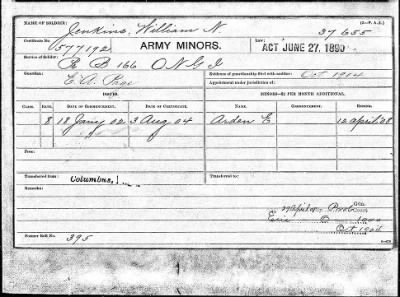 NAME OF SOLDIER: (3-P. A. S.)
Jenkins, William N. 37655
Certificate No. 577192 ARMY MINORS. ACT JUNE 27, 1890
Service of Soldier:
B 166 O N G I
Guardian: Evidence of guardianship filed with auditor: Oct 1914
E. A. Appointment under jurisdiction of:
ISSUED. MINORS—$2 PER MONTH ADDITIONAL.
CLASS. RATE. DATE OF COMMENCEMENT. DATE OF CERTIFICATE. NAME. COMMENCEMENT. ENDING.
8 18 Jany 02 3 Aug 04 Arden E 12 April 08
Fees:
Transferred from Columbus, Transferred to:
Remarks:
Former Roll No. 395